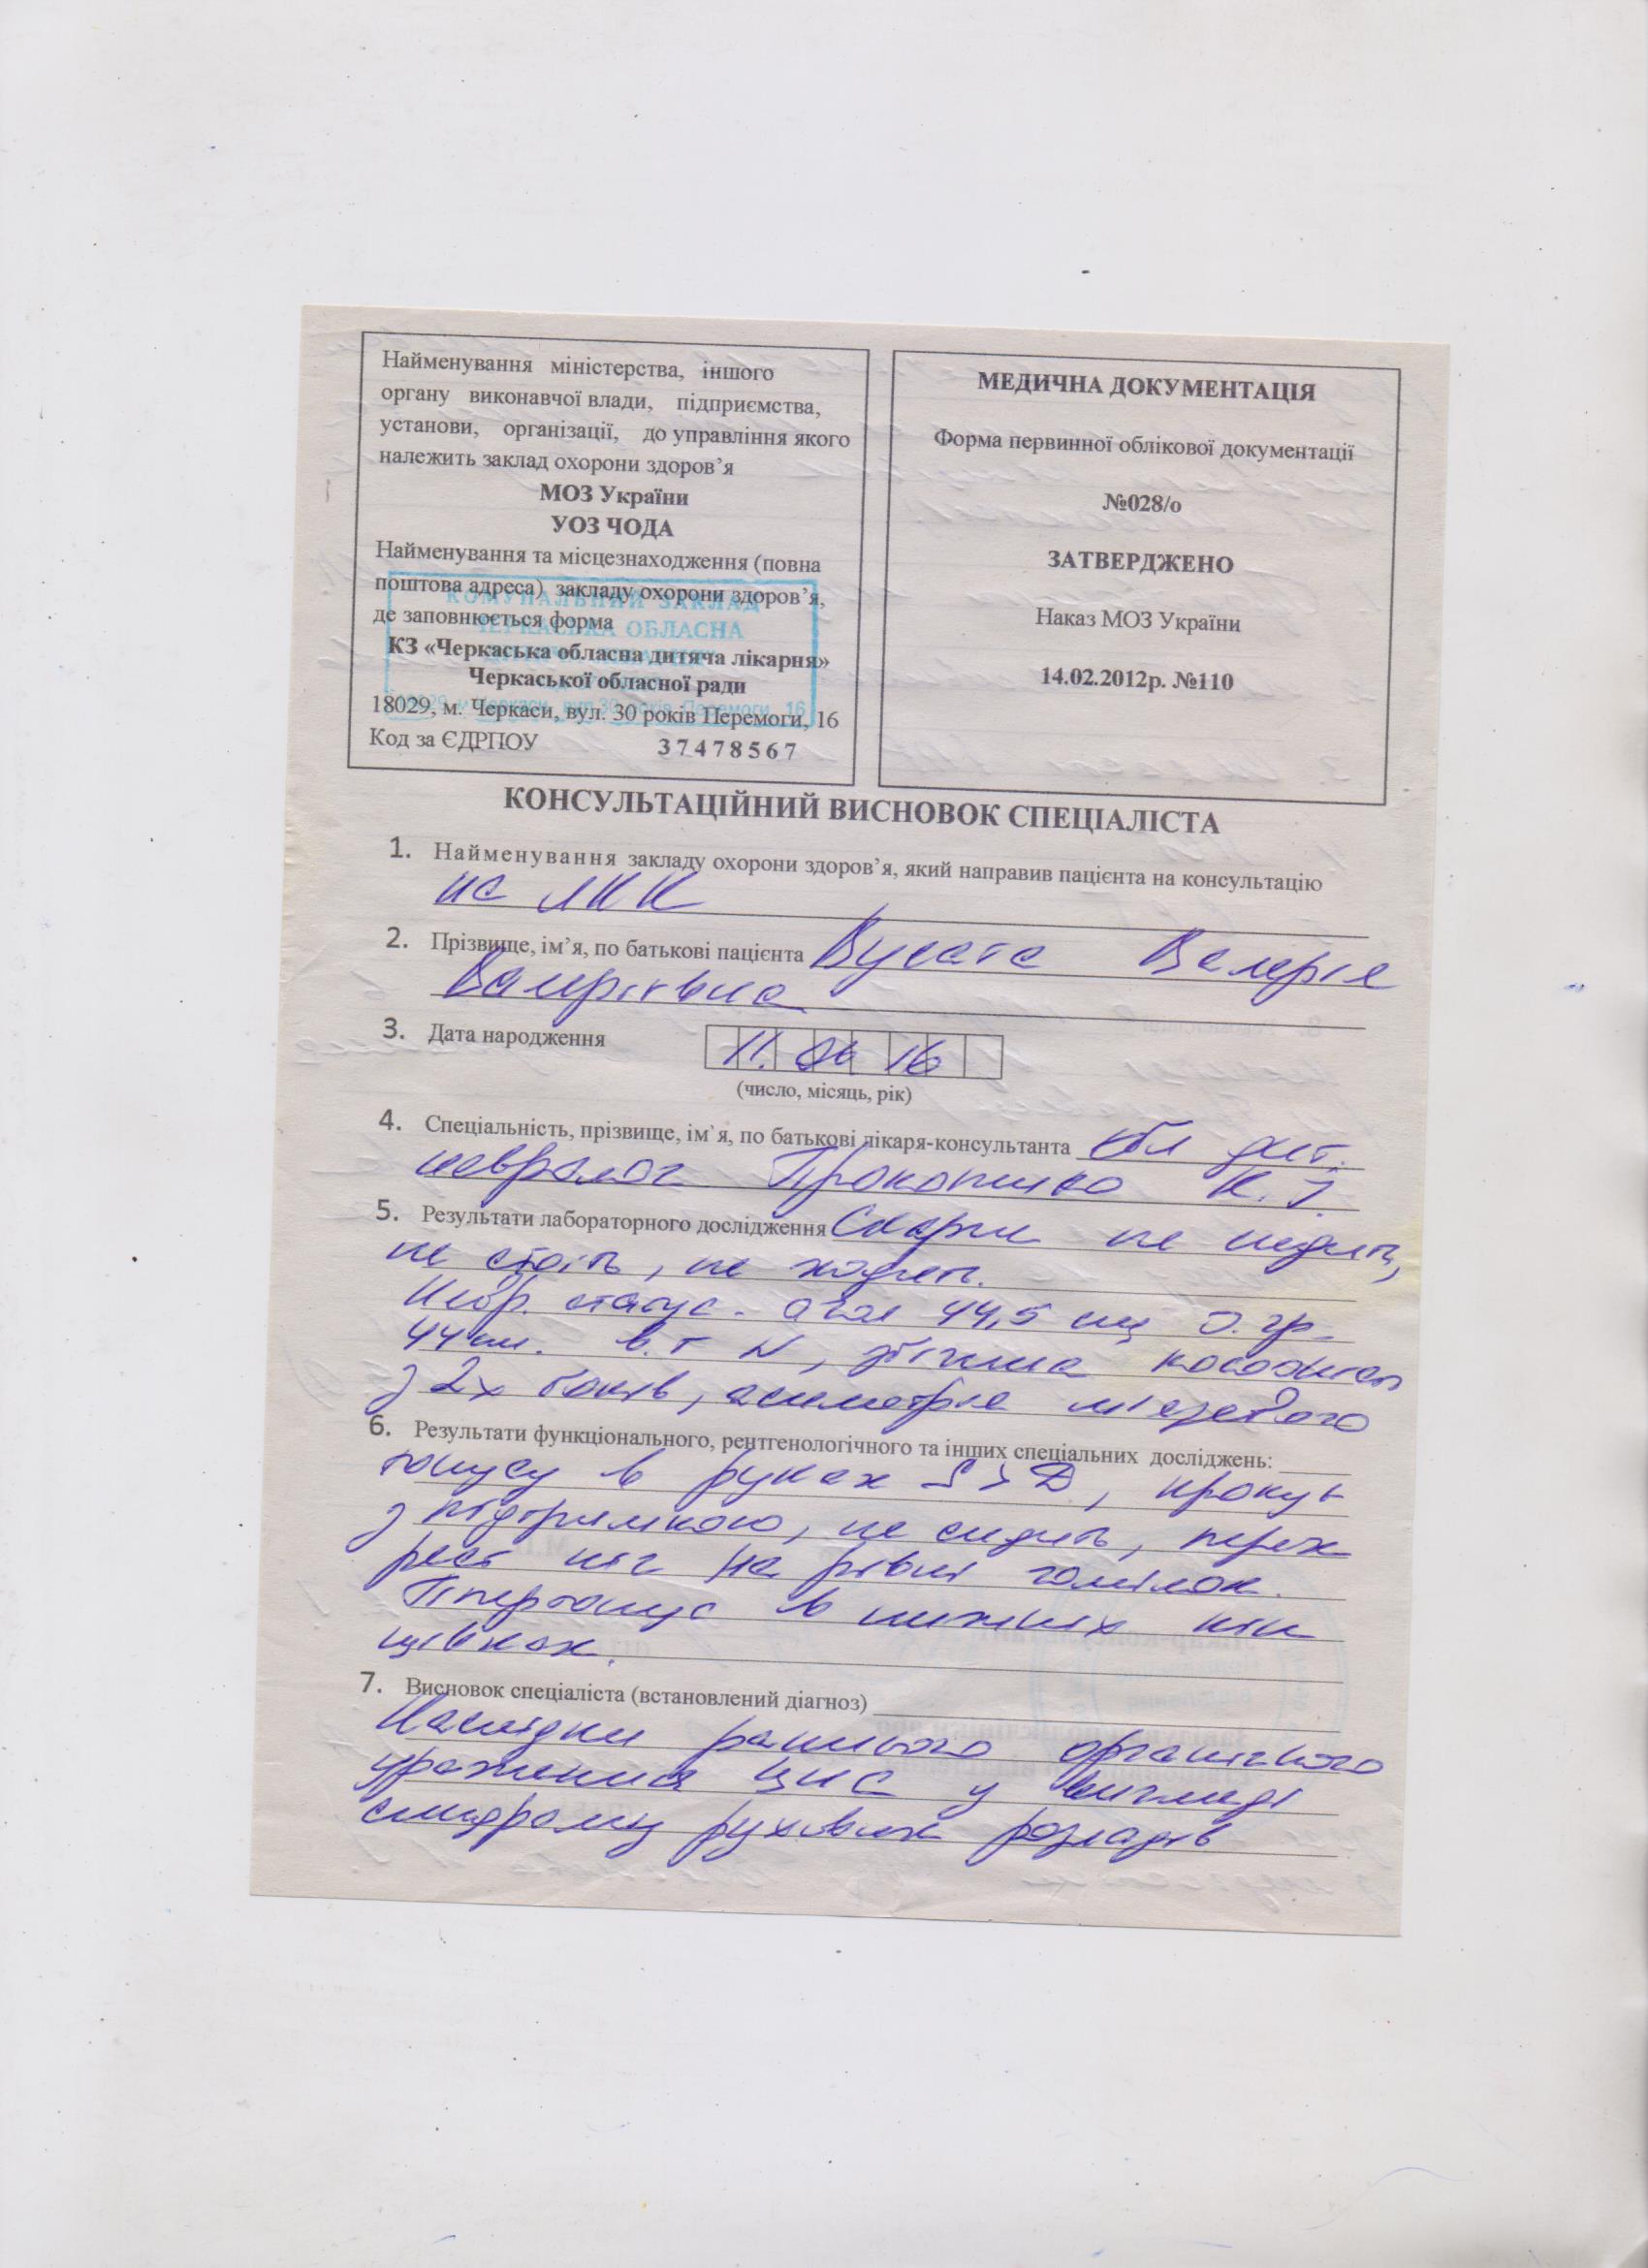 Найменування міністерства, іншого
органу виконавчої влади, підприємства,
установи, організації, до управління якого
належить заклад охорони здоров’я
МОЗ України
УОЗ ЧОДА
Найменування та місцезнаходження (повна
поштова адреса) закладу охорони здоров’я,
де заповнюється форма
КЗ «Черкаська обласна дитяча лікарня»
Черкаської обласної ради
18029, м. Черкаси, вул. 30 років Перемоги, 16
Код за ЄДРПОУ 37478567
КОМУНАЛЬНИЙ ЗАКЛАД
ЧЕРКАСЬКА ОБЛАСНА
МЕДИЧНА ДОКУМЕНТАЦІЯ
Форма первинної облікової документації
№028/о
ЗАТВЕРДЖЕНО
Наказ МОЗ України
14.02.2012р. №110
КОНСУЛЬТАЦІЙНИЙ ВИСНОВОК СПЕЦІАЛІСТА
1. Найменування закладу охорони здоров’я, який направив пацієнта на консультацію
на ЛКК
2. Прізвище, ім’я, по батькові пацієнта Вусата Валерія
Валеріївна
3. Дата народження 11.06 16
(число, місяць, рік)
4. Спеціальність, прізвище, ім`я, по батькові лікаря-консультанта обл дит.
невролог Прокопенко К. І.
5. Результати лабораторного дослідження Скарги не сидить,
не стоїть, не ходить.
Невр. статус. - о гол 44,5 см о. гр.
44 см. в.т N, збіжна косоокість
з 2х боків, асиметрія м'язевого
6. Результати функціонального, рентгенологічного та інших спеціальних досліджень:
тонусу в руках S > D, крокує
з підтримкою, не сидить, перех
рест ніг на рівні гомілок.
Гіпертонус в нижніх кін
цівках.
7. Висновок спеціаліста (встановлений діагноз)
Наслідки раннього органічного
ураження ЦНС у вигляді
синдрому рухових розладів